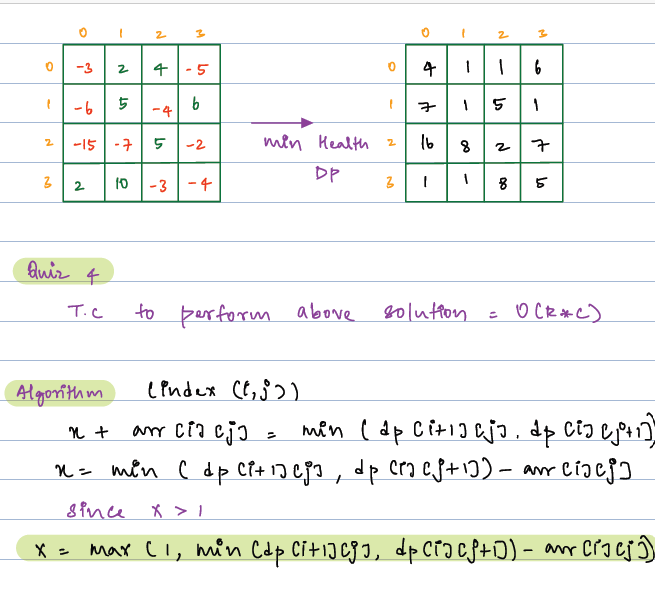 0 1 2 3 0 1 2 3
0 -3 2 4 -5 0 4 1 1 6
1 -6 5 -4 6 1 7 1 5 1
2 -15 -7 5 -2 min Health 2 16 8 2 7
DP
3 2 10 -3 -4 3 1 1 8 5
Quiz 4
T.C to perform above solution = O(R*C)
Algorithm (index (i,j))
x + arr[i][j] = min (dp[i+1][j], dp[i][j+1])
x = min (dp[i+1][j], dp[i][j+1]) - arr[i][j]
since x > 1
x = max (1, min(dp[i+1][j], dp[i][j+1]) - arr[i][j])